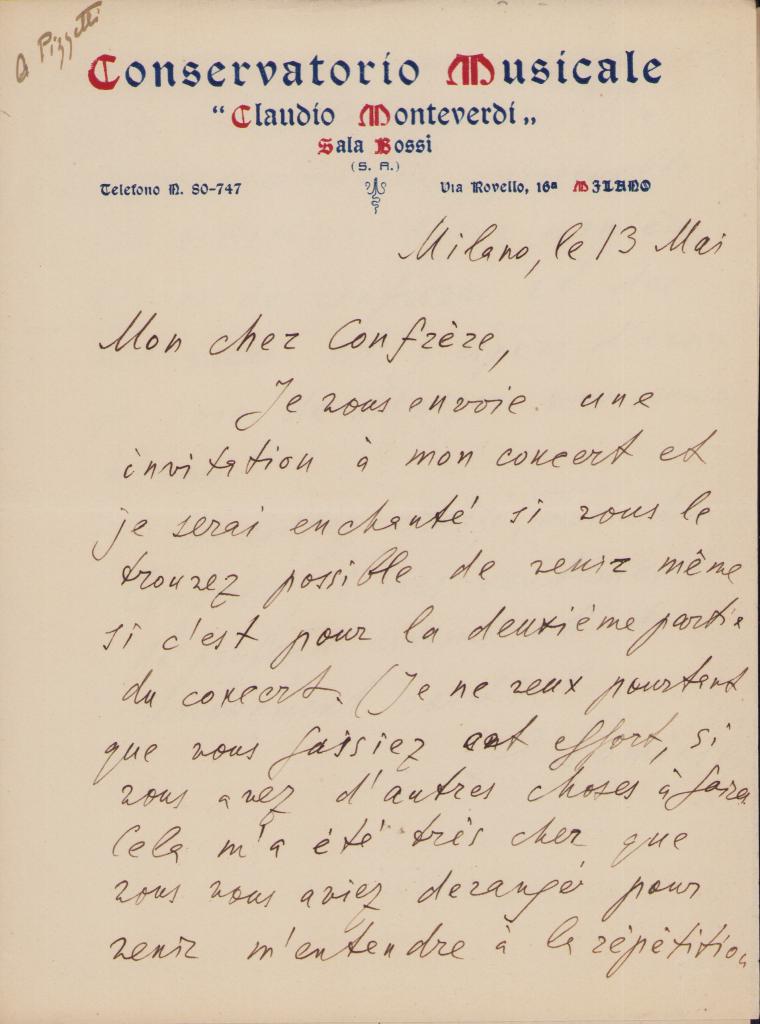 a Pizzetti
Conservatorio Musicale
"Claudio Monteverdi„
Sala Bossi
(S. A.)
Telefono N. 80-747 Via Rovello, 16ª MILANO
Milano, le 13 Mai
Mon cher Confrère,
Je vous envoie une
invitation à mon concert et
je serai enchanté si vous le
trouvez possible de venir même
si c'est pour la deuxième partie
du concert. (Je ne veux pourtant
que vous fassiez cet effort, si
vous avez d'autres choses à faire.
Cela m'a été très cher que
vous vous aviez derangé pour
venir m'entendre à la répétition